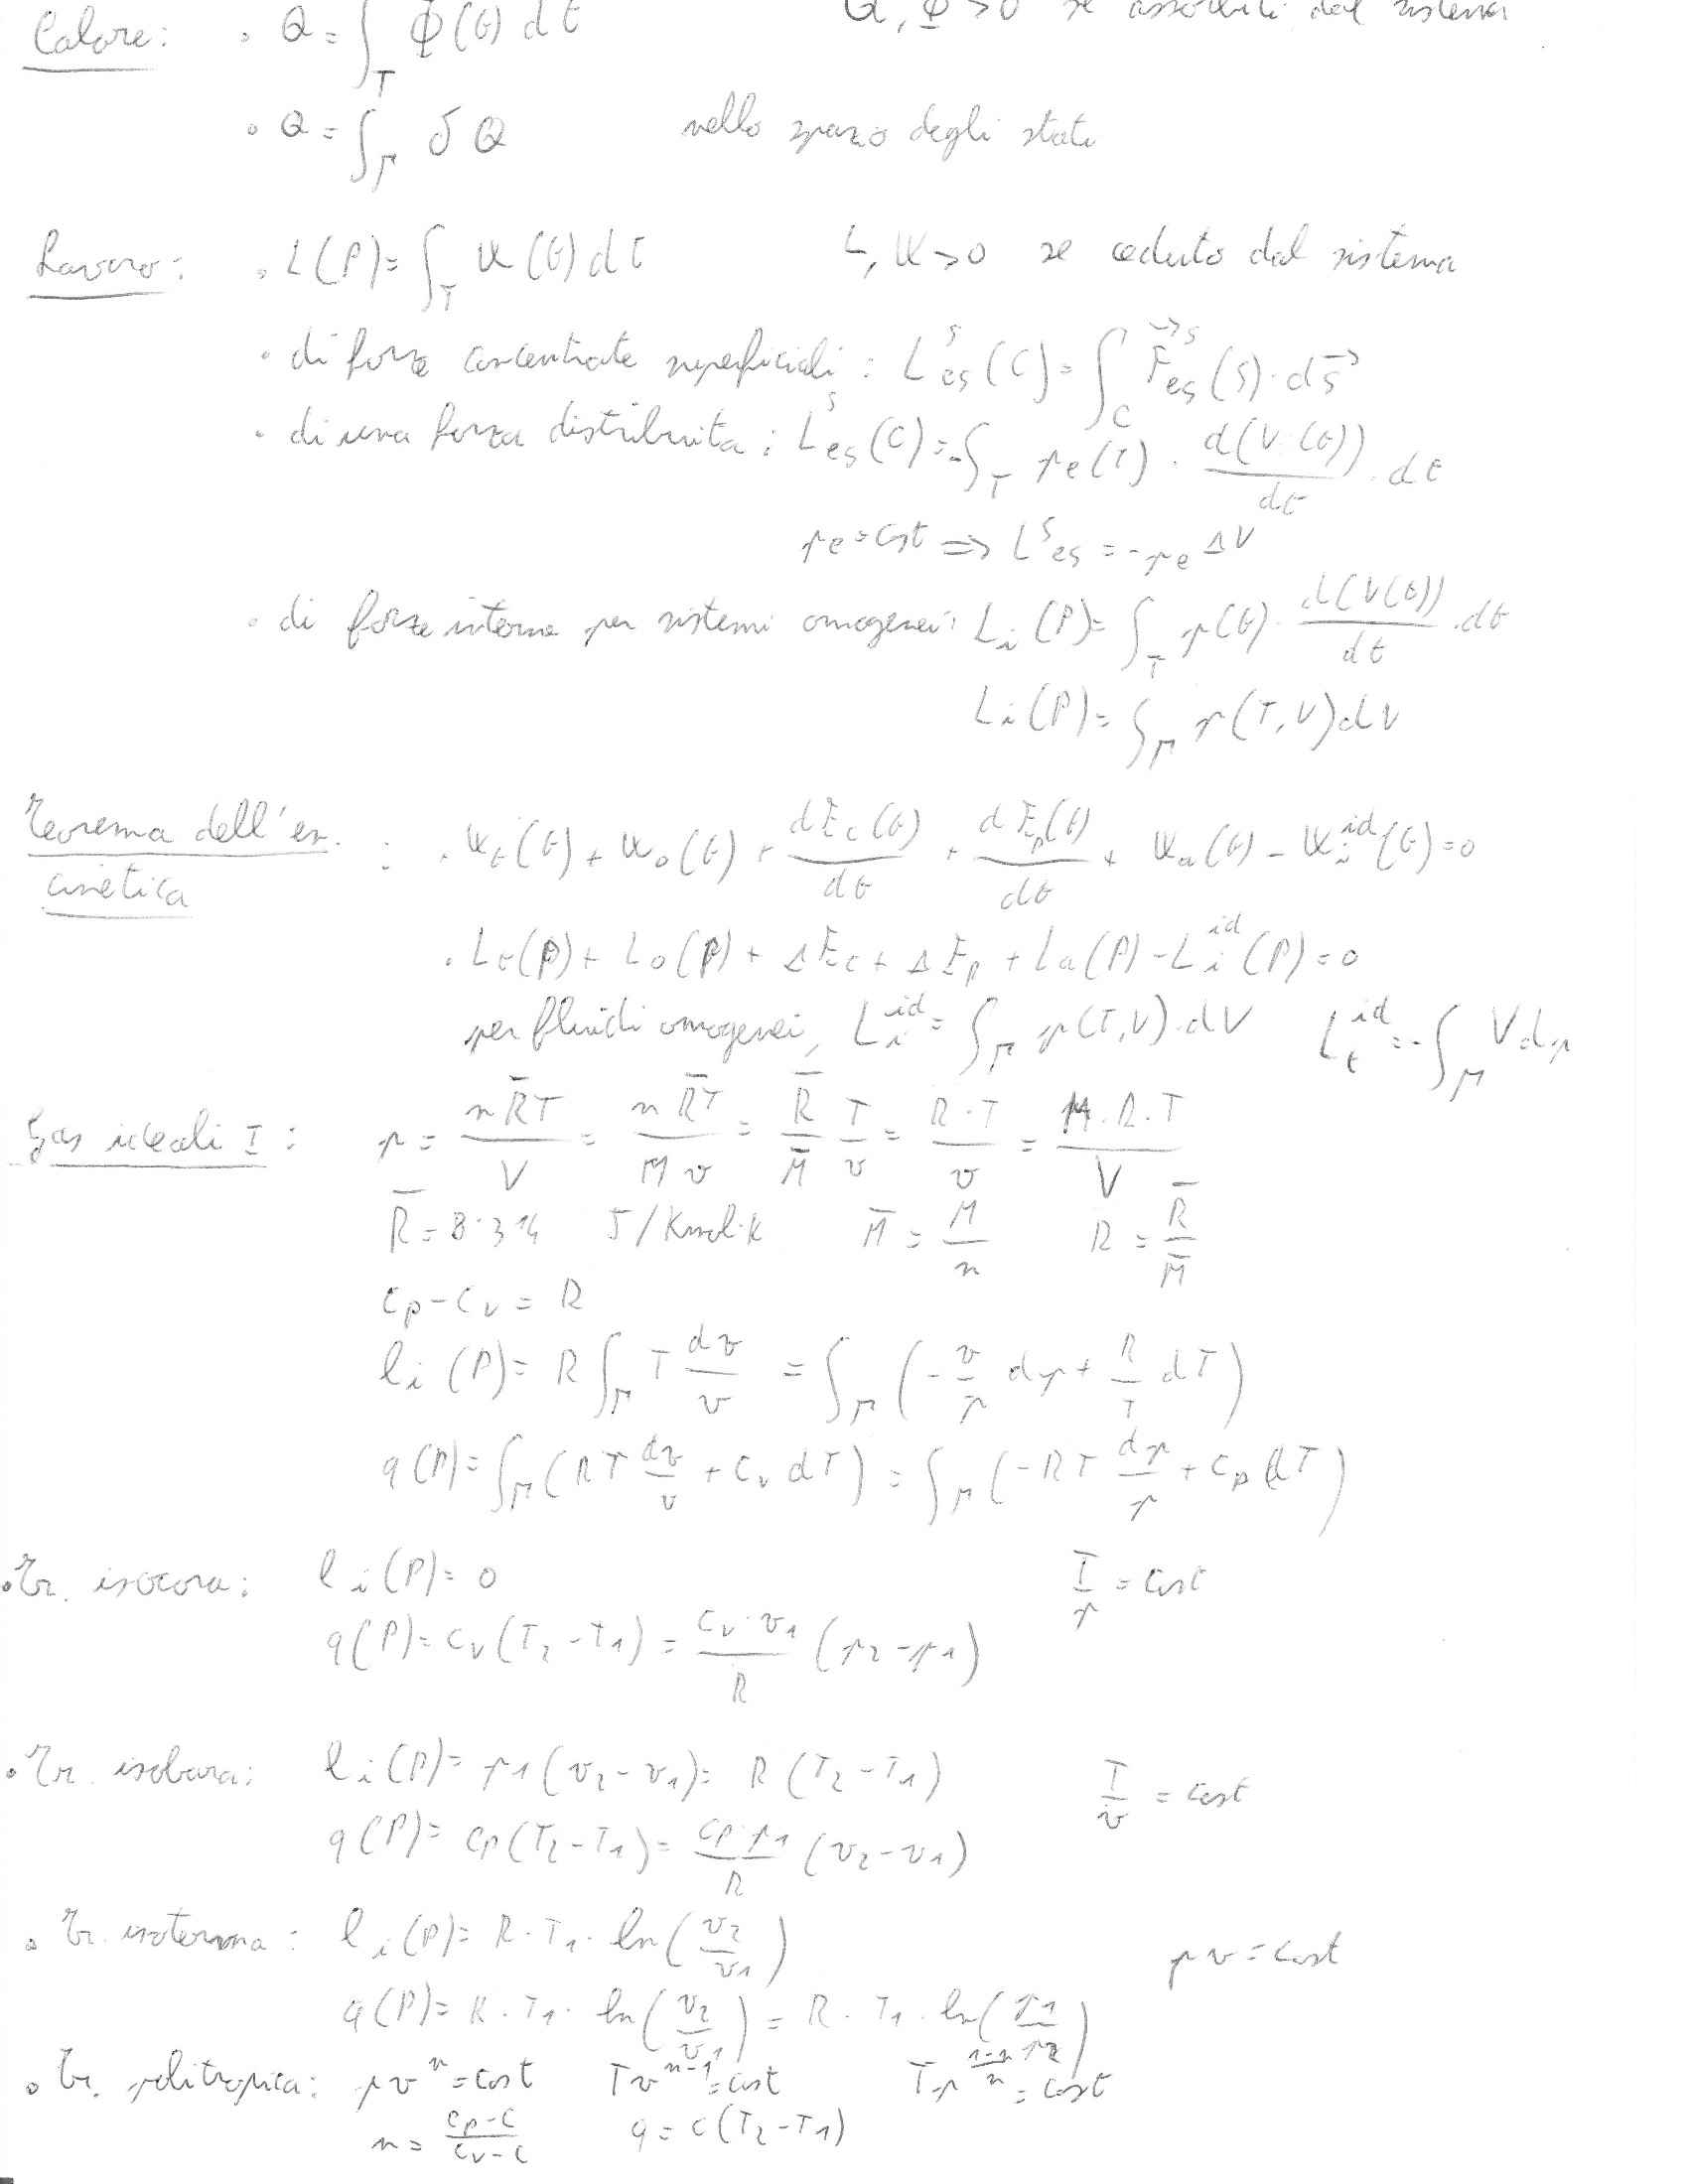 Calore: • Q = ∫_T Φ(t) dt    Q, Φ > 0 se assorbiti dal sistema
• Q = ∫_Γ δQ    nello spazio degli stati
Lavoro: • L(P) = ∫_T W(t) dt    L, W > 0 se ceduto dal sistema
• di forze concentrate superficiali: L^s_es(C) = ∫_C F^s_es(s)·ds
• di una forza distribuita: L^s_es(C) = -∫_T pe(t) · d(V(t))/dt · dt
pe = cost ⇒ L^s_es = -pe ΔV
• di forze interne per sistemi omogenei: Li(P) = ∫_T p(t) · d(V(t))/dt · dt
Li(P) = ∫_Γ p(T,V) dV
Teorema dell'en. cinetica: • Wt(t) + Wo(t) + dEc(t)/dt + dEp(t)/dt + Wa(t) - Wi^id(t) = 0
• Lt(P) + Lo(P) + ΔEc + ΔEp + La(P) - Li^id(P) = 0
per fluidi omogenei, Li^id = ∫_Γ p(T,V)·dV    Lt^id = -∫_Γ V dp
Gas ideali I: p = nR̄T/V = nR̄T/(M v) = R̄/M̄ T/v = R·T/v = M·R·T/V
R̄ = 8·314 J/Kmol·K    M̄ = M/n    R = R̄/M̄
cp - cv = R
li(P) = R ∫_Γ T dv/v = ∫_Γ (-v/p dp + R/T dT)
q(P) = ∫_Γ (RT dv/v + cv dT) = ∫_Γ (-RT dp/p + cp dT)
• Tr. isocora: li(P) = 0    T/p = cost
q(P) = cv(T2 - T1) = cv·v1/R (p2 - p1)
• Tr. isobara: li(P) = p1(v2 - v1) = R(T2 - T1)    T/v = cost
q(P) = cp(T2 - T1) = cp·p1/R (v2 - v1)
• Tr. isoterma: li(P) = R·T1·ln(v2/v1)    pv = cost
q(P) = R·T1·ln(v2/v1) = R·T1·ln(p1/p2)
• Tr. politropica: pv^n = cost    Tv^(n-1) = cost    Tp^((1-n)/n) = cost
n = (cp-c)/(cv-c)    q = c(T2 - T1)